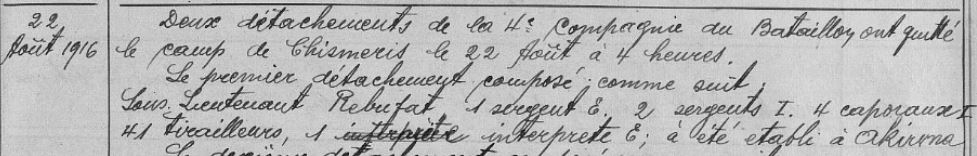 22 Deux détachements de la 4e Compagnie du Bataillon ont quitté
Août 1916 le camp de Chismeris le 22 Août à 4 heures.
Le premier détachement composé comme suit,
Sous-Lieutenant Rebufat 1 sergent E, 2 sergents I. 4 caporaux I
41 tirailleurs, 1 interprète E; à été établi à Akirma